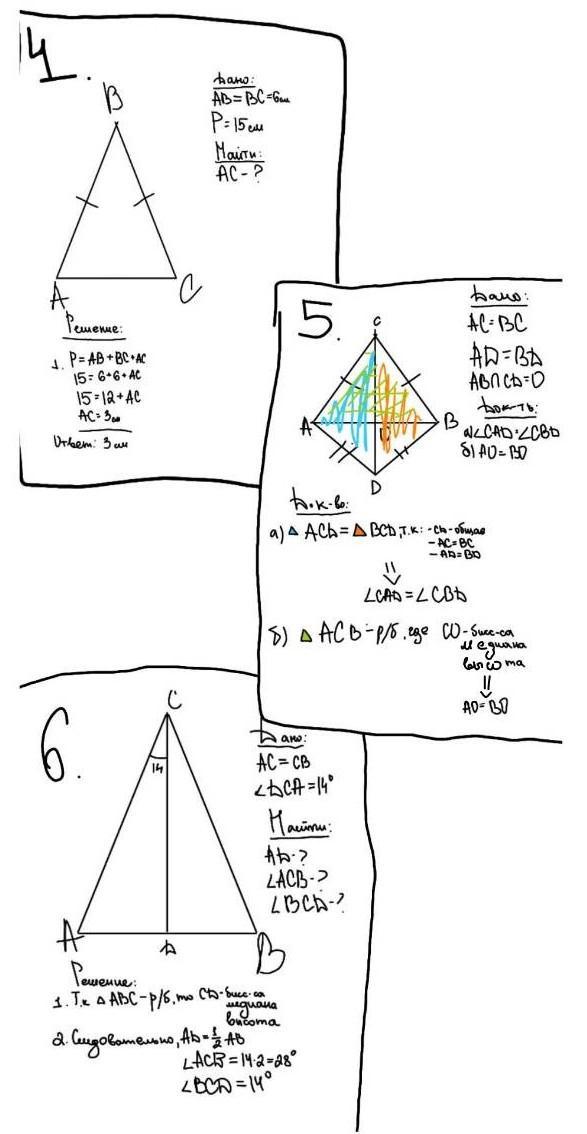 4.
B
A
C
Дано:
AB = BC = 6 см
P = 15 см
Найти:
AC - ?
Решение:
1. P = AB + BC + AC
15 = 6 + 6 + AC
15 = 12 + AC
AC = 3 см
Ответ: 3 см
5.
C
A
B
D
Дано:
AC = BC
AD = BD
AB ∩ CD = O
Док-ть:
а) ∠CAD = ∠CBD
б) AO = BO
Док-во:
а) △ ACD = △ BCD, т.к.: - CD - общая
- AC = BC
- AD = BD
⇓
∠CAD = ∠CBD
б) △ ACB - р/б, где CO - бисс-са
медиана
высота
⇓
AO = BO
6.
C
14
A
D
B
Дано:
AC = CB
∠DCA = 14°
Найти:
AD - ?
∠ACB - ?
∠BCD - ?
Решение:
1. Т.к △ ABC - р/б, то CD - бисс-са
медиана
высота
2. Следовательно, AD = 1/2 AB
∠ACB = 14·2 = 28°
∠BCD = 14°